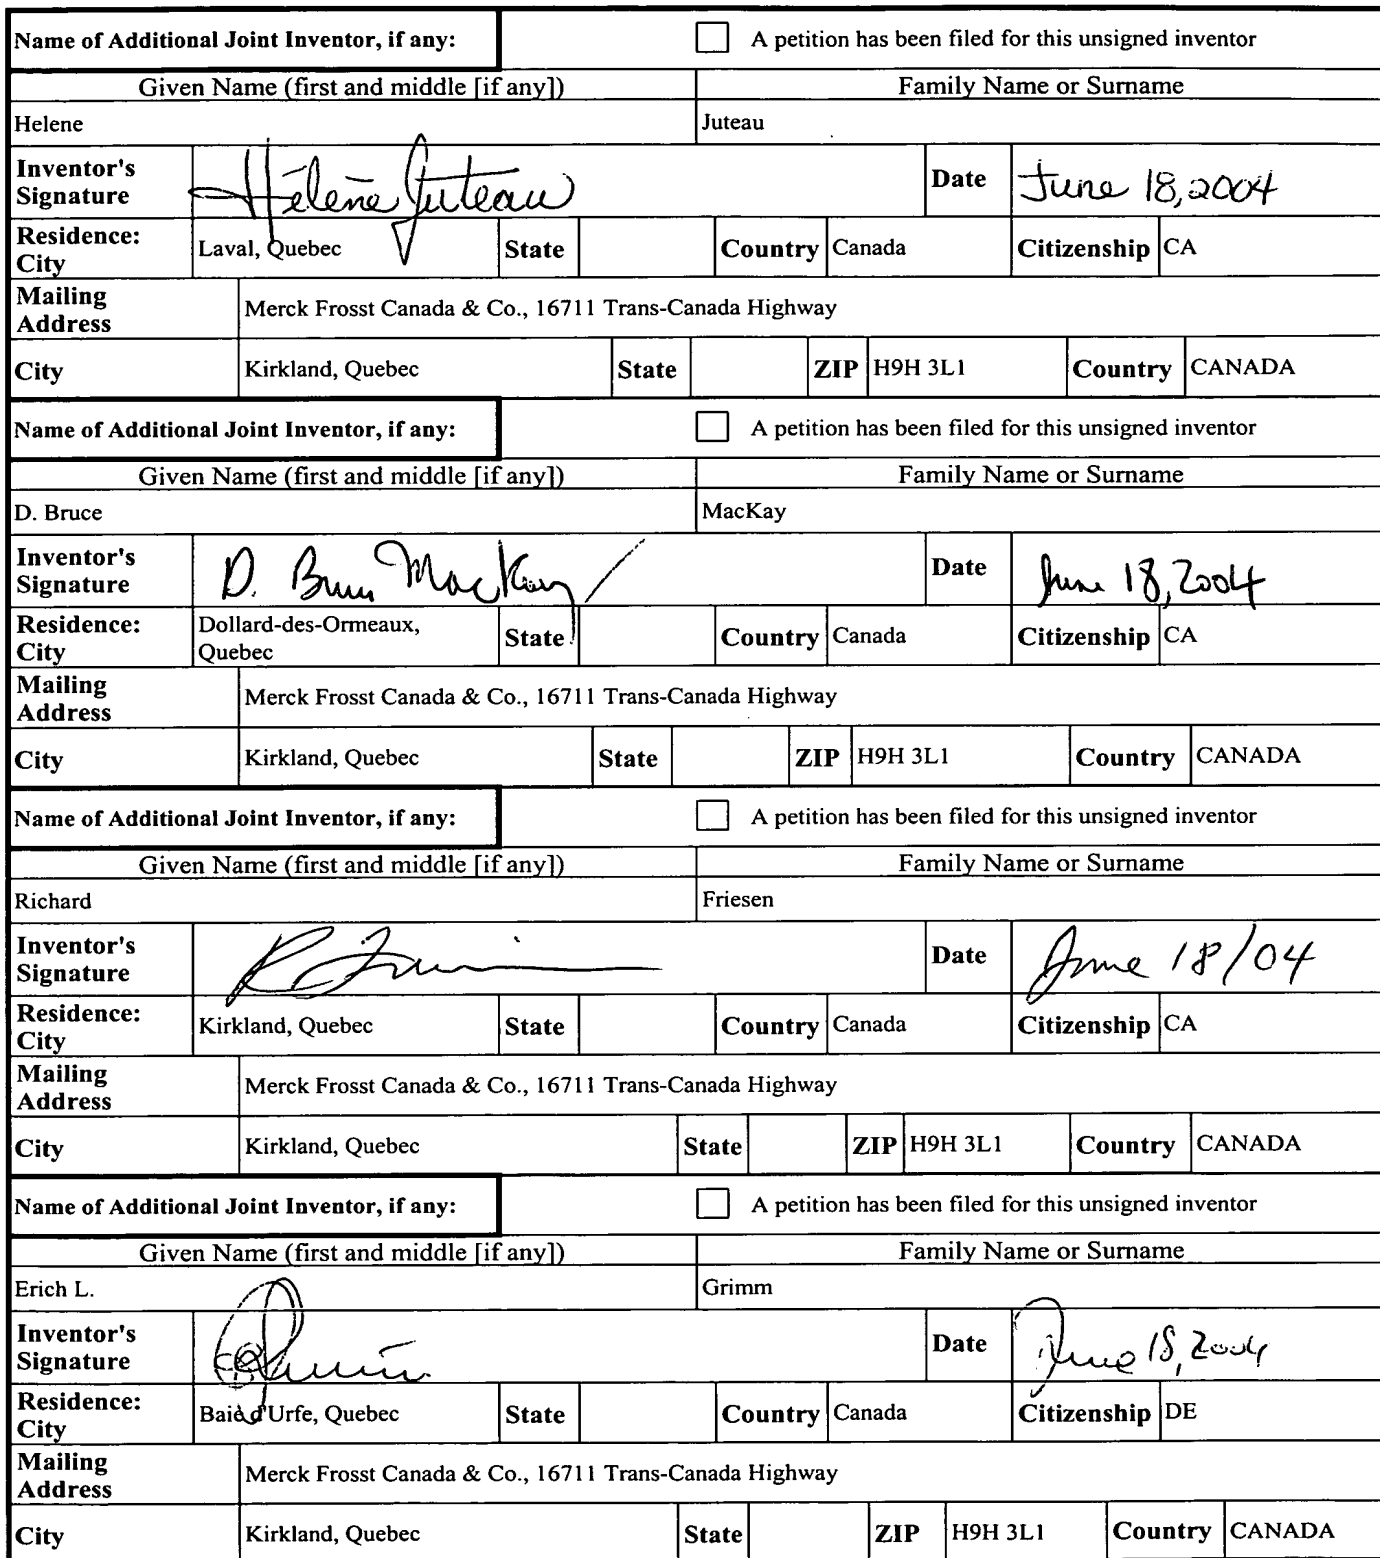 Name of Additional Joint Inventor, if any: A petition has been filed for this unsigned inventor
Given Name (first and middle [if any]) Family Name or Surname
Helene Juteau
Inventor's Signature Hélène Juteau Date June 18, 2004
Residence: City Laval, Quebec State Country Canada Citizenship CA
Mailing Address Merck Frosst Canada & Co., 16711 Trans-Canada Highway
City Kirkland, Quebec State ZIP H9H 3L1 Country CANADA
Name of Additional Joint Inventor, if any: A petition has been filed for this unsigned inventor
Given Name (first and middle [if any]) Family Name or Surname
D. Bruce MacKay
Inventor's Signature D. Bruce MacKay Date June 18, 2004
Residence: City Dollard-des-Ormeaux, Quebec State Country Canada Citizenship CA
Mailing Address Merck Frosst Canada & Co., 16711 Trans-Canada Highway
City Kirkland, Quebec State ZIP H9H 3L1 Country CANADA
Name of Additional Joint Inventor, if any: A petition has been filed for this unsigned inventor
Given Name (first and middle [if any]) Family Name or Surname
Richard Friesen
Inventor's Signature Date June 18/04
Residence: City Kirkland, Quebec State Country Canada Citizenship CA
Mailing Address Merck Frosst Canada & Co., 16711 Trans-Canada Highway
City Kirkland, Quebec State ZIP H9H 3L1 Country CANADA
Name of Additional Joint Inventor, if any: A petition has been filed for this unsigned inventor
Given Name (first and middle [if any]) Family Name or Surname
Erich L. Grimm
Inventor's Signature Date June 18, 2004
Residence: City Baie d'Urfe, Quebec State Country Canada Citizenship DE
Mailing Address Merck Frosst Canada & Co., 16711 Trans-Canada Highway
City Kirkland, Quebec State ZIP H9H 3L1 Country CANADA